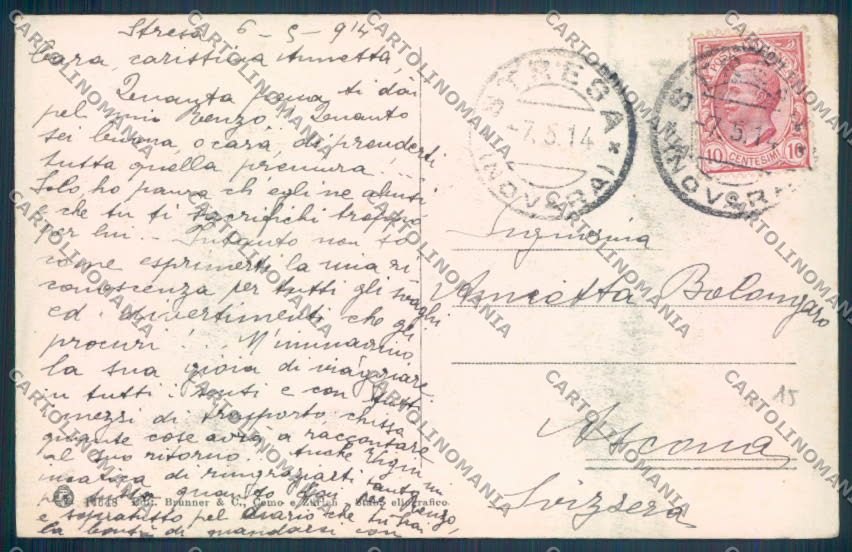 Stresa 6-5-914
Cara, carissima Annetta,
Quanta pena ti dai
pel mio Renzo, Quanto
sei buona, o cara, di prenderti
tutta quella premura...
Solo ho paura ch'egli ne abusi
e che tu ti sacrifichi troppo
per lui... Intanto non so
come esprimerti la mia ri
conoscenza per tutti gli svaghi
ed i divertimenti che gli
procuri!... M'immagino
la sua gioia di viaggiare
in tutti i modi e con tutti
i mezzi di trasporto chissà
quante cose avrà a raccontare
al suo ritorno!. Anche
incarica di ringraziarti tanto
quanto fai per Renzo,
e sopratutto pel diario che tu hai
la bontà di mandarci con
STRESA
-7.5.14
(NOVARA)
STRESA
-7.5.14
(NOVARA)
POSTE ITALIANE
10 CENTESIMI 10
Signorina
Annetta Bolongaro
Ascona
Svizzera
15
Edit. Brunner & C., Como e Zürich - Stab. eliografico
CARTOLINOMANIA